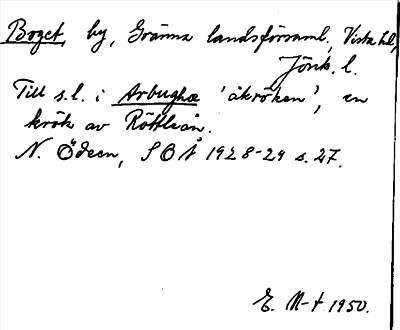 Boget, by, Gränna landsförsaml., Vista hd,
Jönk. l.
Till s.l. i Arbughæ 'åkröken', en
krök av Röttleån.
N. Ödeen, SOÅ 1928-29 s. 27.
E. M-t 1950.